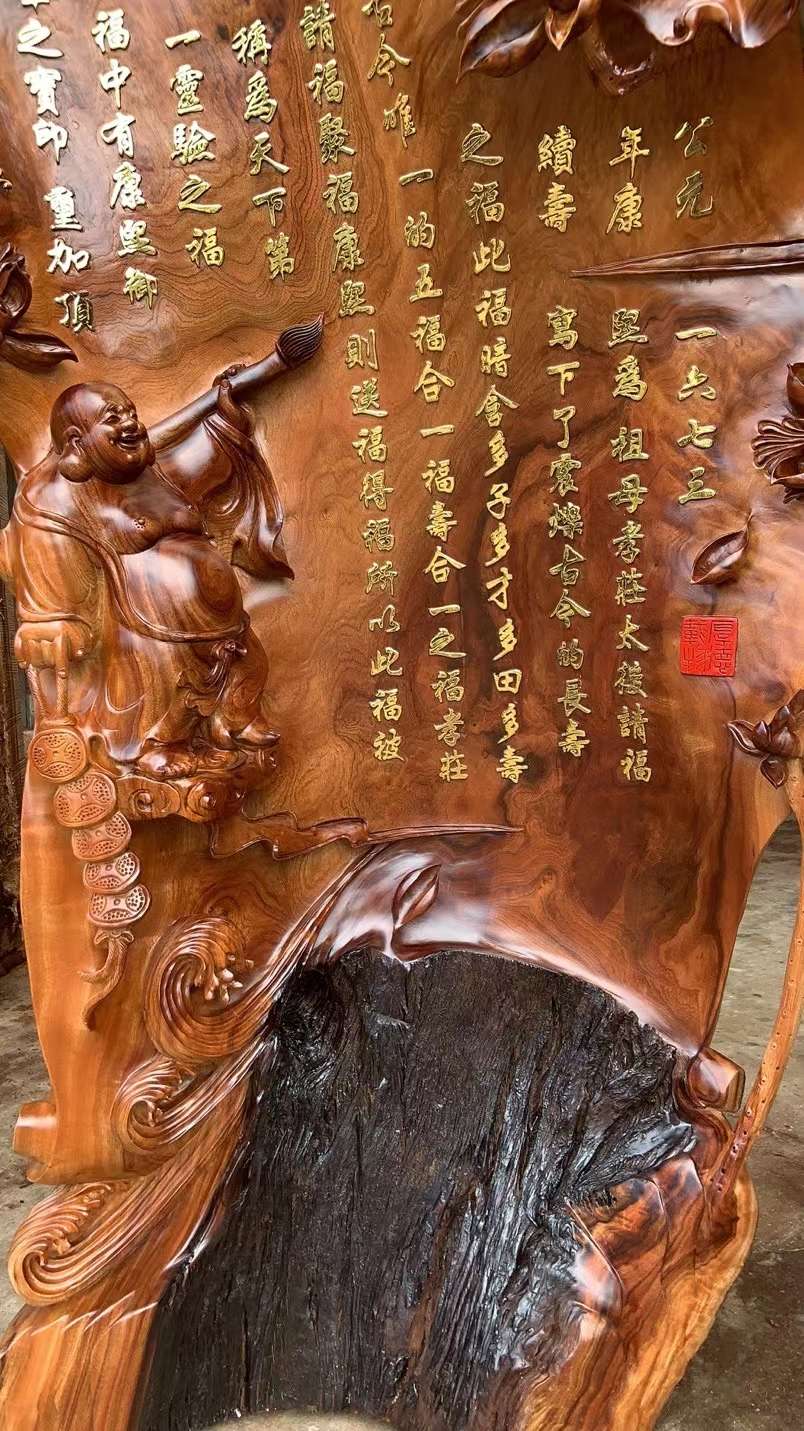 公元一六七三
年康熙為祖母孝莊太後請福
續壽寫下了震爍古今的長壽
之福此福暗含多子多才多田多壽
古今唯一的五福合一福壽合一之福孝莊
請福聚福康熙則送福得福所以此福被
稱為天下第
一靈驗之福
福中有康熙御
之寶印 重加頂
厚德載物